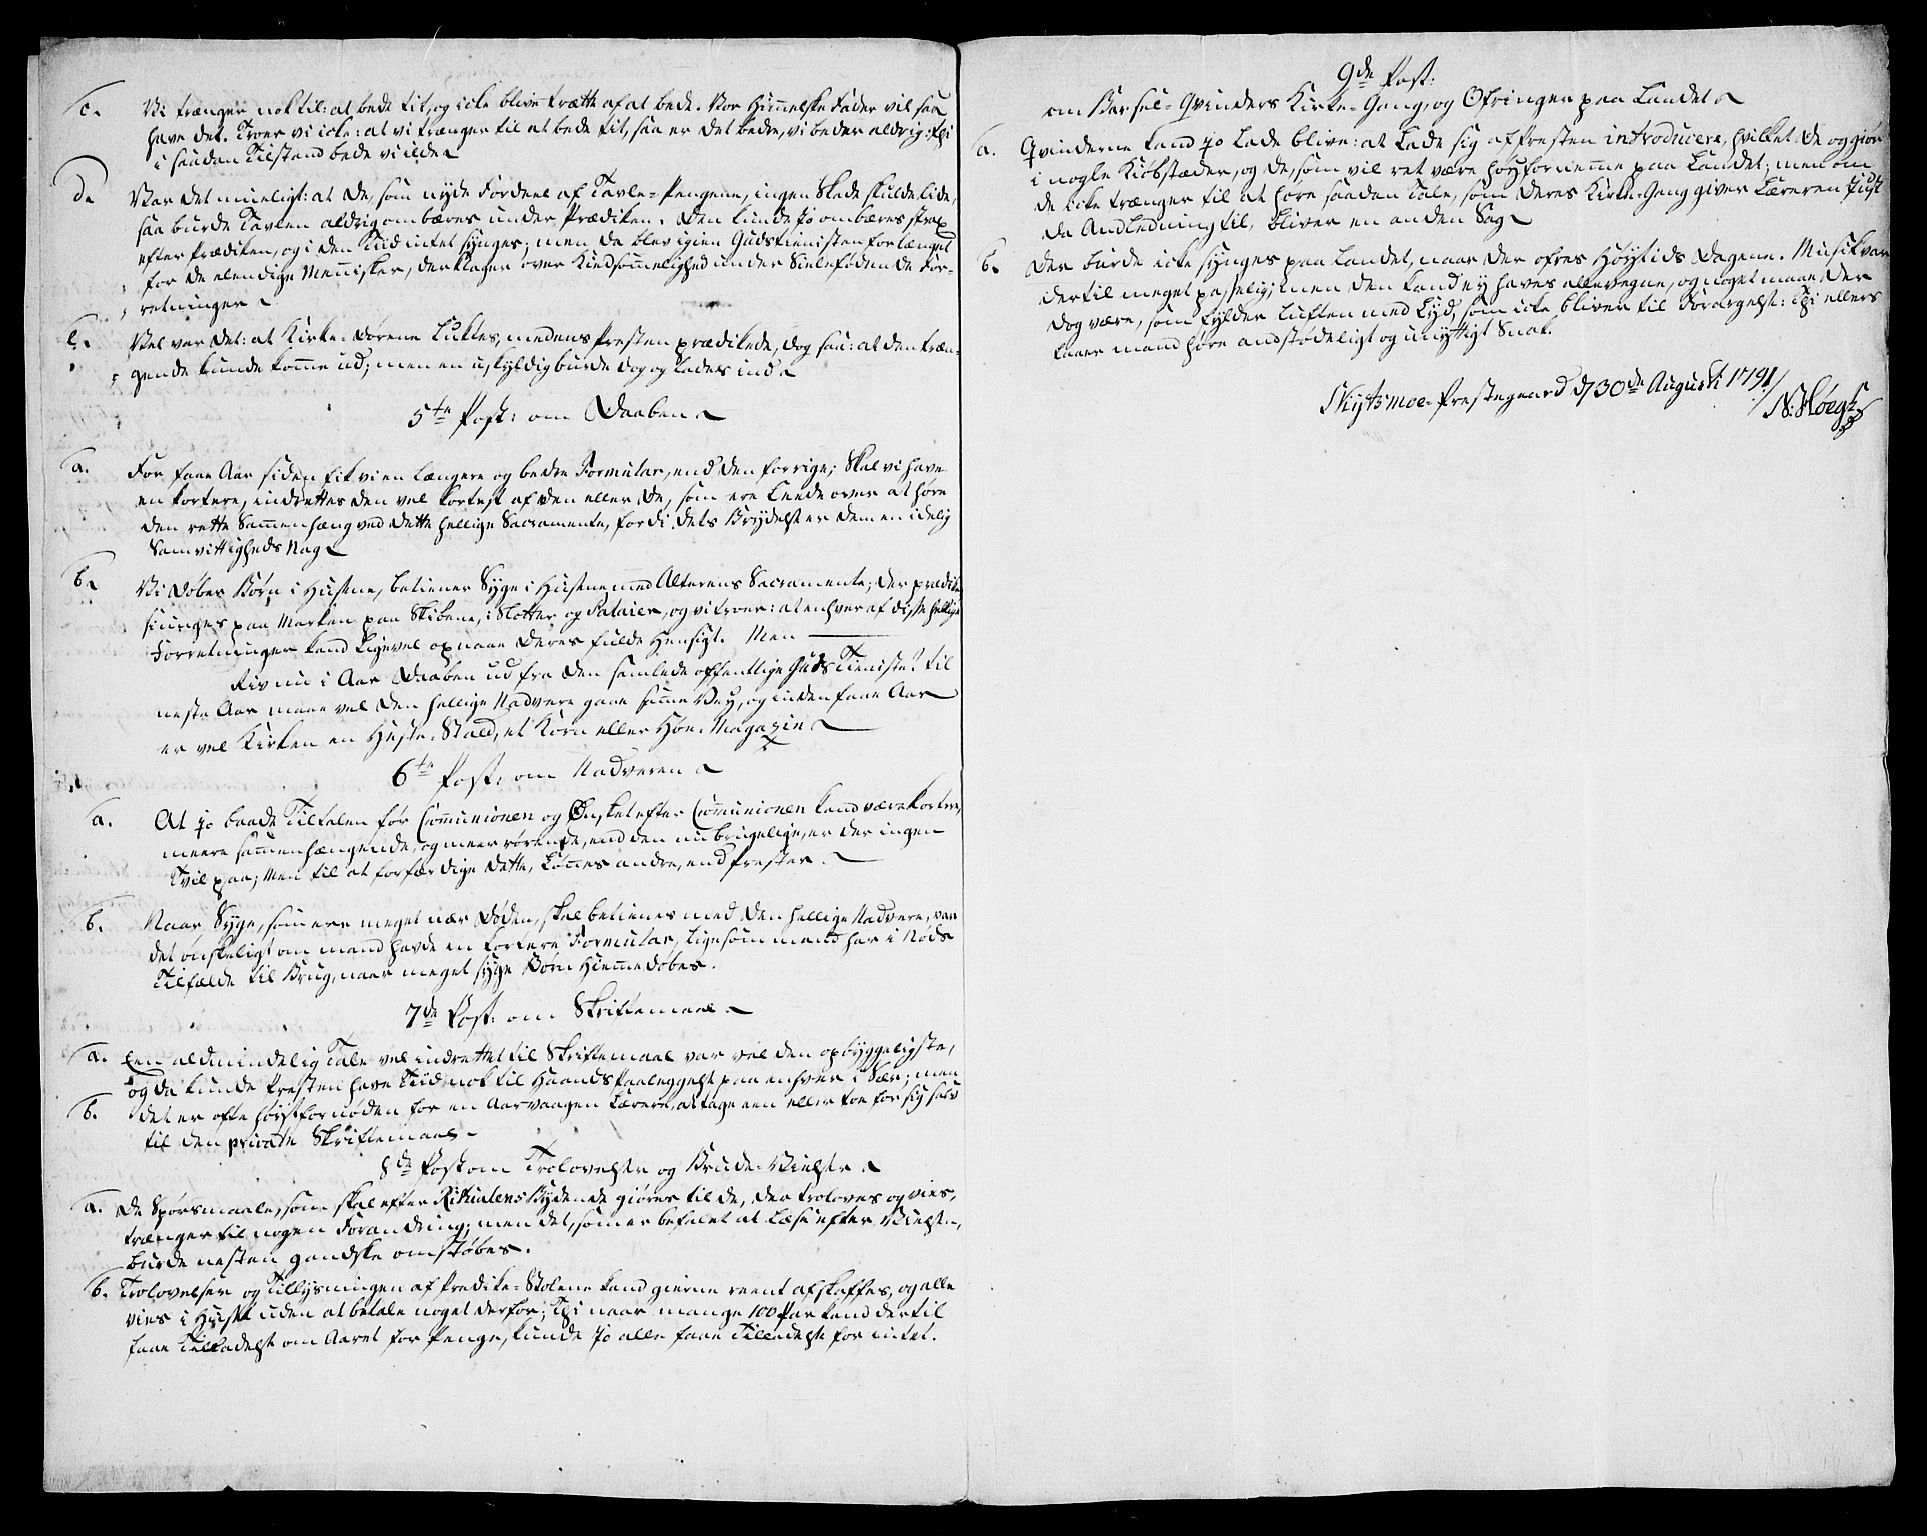 c. Vi trænger nok til: at bede tit, og icke blive trætte af at bede. Vor Himmelske Fader vil saa
have det. Troer vi icke: at vi trænger til at bede tit, saa er det bedre, vi beder aldrig; thi
i saadan Tilstand bede vi ilde
d. Var det mueligt: at de, som nyde Fordeel af Tavle-Pengene, ingen Skade skulde lide,
saa burde Tavlen aldrig ombæres under Prædiken. Den kunde jo ombæres strax
efter Prædiken, og i den Tiid intet synges; men da blev igien Gudstienisten forlænget
for de elendige Mennisker, der klager over Kiedsommelighed under Sielefødende For-
retninger
e. Vel var det: at Kirke-Dørene lukkes, medens Presten prædikede, dog saa: at den træn-
gende kunde komme ud; men en uskyldig burde dog og lades ind
5te Post: om Daaben
a. For faae Aar siden fik vi en længere og bedre Formular, end den forrige; Skal vi have
en kortere, indrettes den vel kortest af den eller de, som ere leede over at høre
den rette Sammenhæng ved dette hellige Sacramente, fordi dets Brydelse er dem en idelig
Samvittigheds Nag
b. Vi døber Børn i Husene, betiener Syge i Husene med Alterens Sacramente; der prædikes
siunges paa Marken paa Skibene, i Slotter og Palaier, og vi troer: at enhver af disse hellige
Forretninger kand ligevel opnaae deres fulde Hensigt. Men
Riv nu i Aar Daaben ud fra den samlede offentlige Guds Tieniste! til
neste Aar maae vel den hellige Nadvere gaae samme Vey, og inden faae Aar
er vel Kirken en Heste-Stald, et Korn eller Høe-Magazin
6te Post: om Nadveren
a. At jo baade Tiltalen før Communionen og Ønsket efter Communionen kand være kortere,
meere sammenhængende, og meer rørende, end den nu brugelige, er der ingen
Tvil paa; Men til at forfærdige dette, lønnes andre, end Prester.
b. Naar Syge, som ere meget nær Døden, skal betienes med den hellige Nadvere, var
det ønskeligt om mand havde en kortere Formular, ligesom mand har i Nøds
Tilfælde til Brug, naar meget syge Børn hiemme døbes.
7de Post: om Skriftemaal
a. Een aldmindelig Tale vel indrettet til Skriftemaal var vel den opbyggeligste,
og da kunde Presten have Tiid nok til Haands Paaleggelse paa enhver i Sær; men
b. det er ofte høystfornøden for en Aarvaagen Lærere, at tage een eller toe for sig selv
til den private Skriftemaal
8de Post om Trolovelse og Brude-Vielse
a. De Spørsmaale, som skal efter Ritualens Bydende giøres til de, der troloves og vies,
trænger til nogen Forandring; men det, som er befalet at læse efter Vielsen,
burde nesten gandske omstøbes.
b. Trolovelser og Tillysningen af Prædike-Stolene kand gierne reent afskaffes, og alle
vies i Huset uden at betale noget derfor; Thi naar mange 100 Par kand dertil
faae Tilladelse om Aaret for Penge, kunde jo alle faae Tilladelse for intet.
9de Post:
om Barsel-Qvinders Kirke-Gang, og Ofringer paa Landet
a. Qvinderne kand jo lade blive: at lade sig af Presten introducere, hvilket de og giør
i nogle Kiøbstæder, og de, som vil ret være høyfornemme paa Landet; men om
de icke trænger til at høre saadan Tale, som deres Kirke-Gang giver Læreren just
da Andledning til, bliver en anden Sag
b. Der burde icke synges paa Landet, naar der ofres Høytids Dagene. Musik var
dertil meget passelig; men den kand ey haves allevegne, og noget maae der
dog være, som fylder Luften med Lyd, som icke bliver til Forargelse: Thi ellers
faaer mand høre anstødeligt og unyttigt Snak.
Skydtsmoe-Prestegaard d 30de Augusti 1791/
N: Høegh